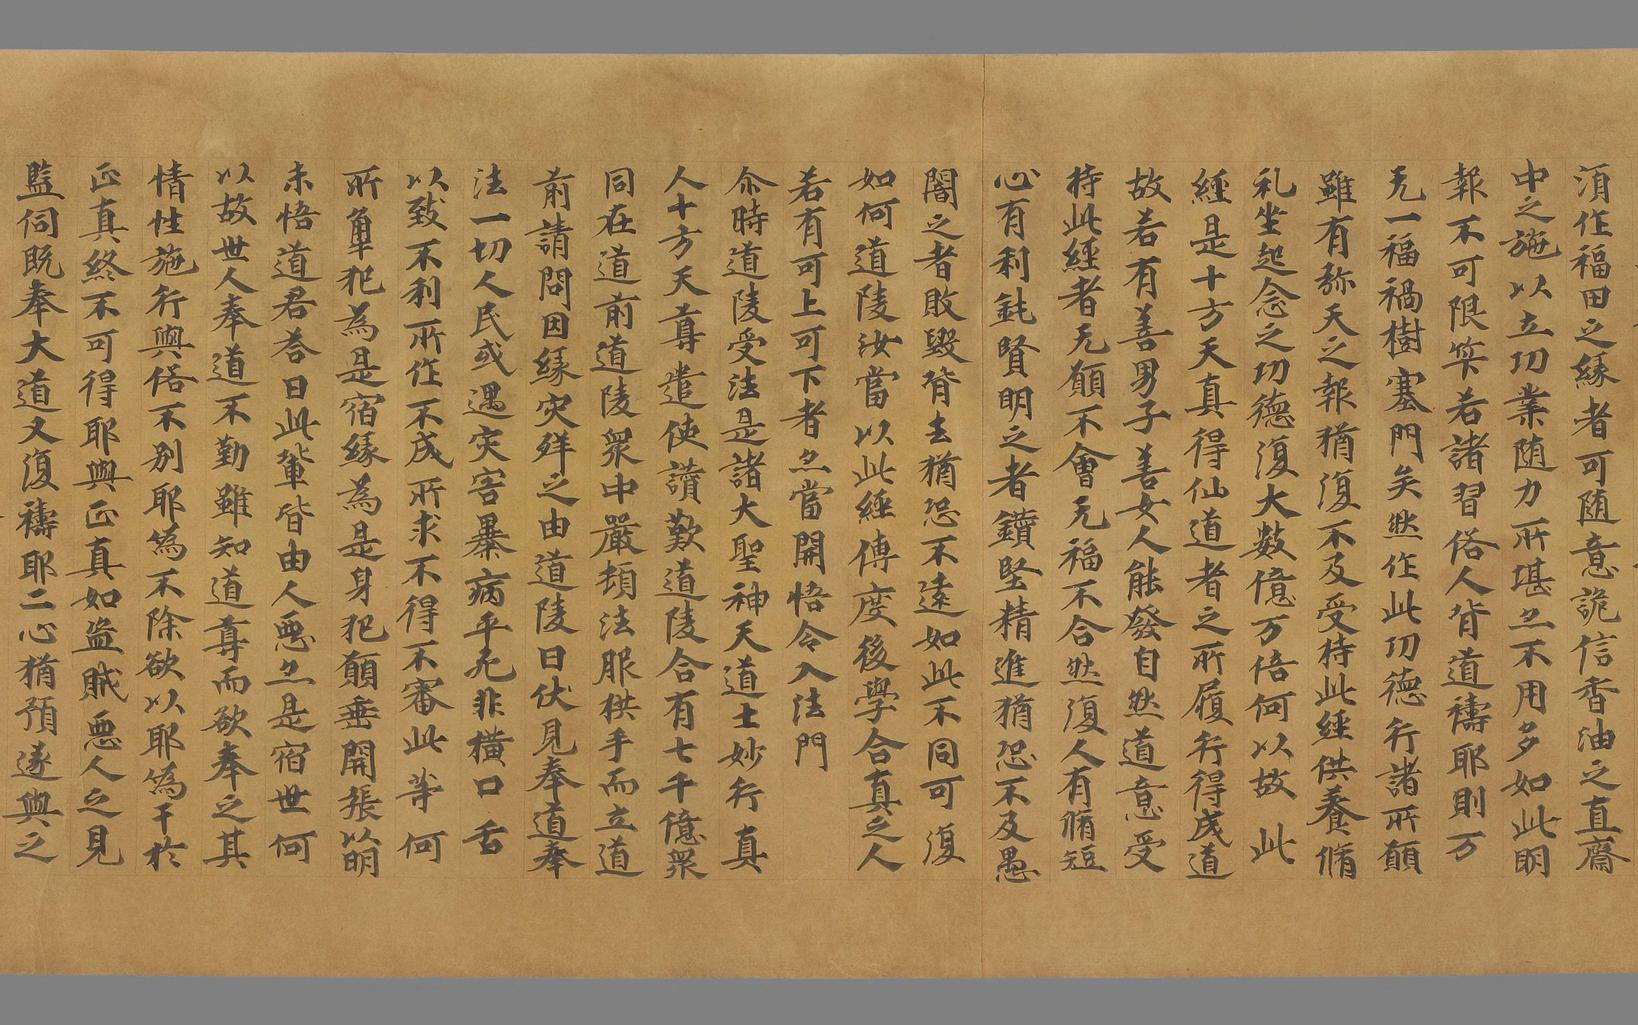 須作福田之緣者可随意詭信香油之直齋
中之施以立功業随力所堪亦不用多如此明
報不可限筭若諸習俗人背道禱耶則万
无一福禍樹塞門矣然作此功德行諸所願
雖有弥天之報猶復不及受持此經供養脩
礼坐起念之功德復大數億万倍何以故此
經是十方天真得仙道者之所履行得成道
故若有善男子善女人能發自然道意受
持此經者无願不會无福不合然復人有脩短
心有利鈍賢明之者鑽堅精進猶恐不及愚
闇之者敗毀背去猶恐不遠如此不同可復
如何道陵汝當以此經傳度後學合真之人
若有可上可下者亦當開悟令入法門
尒時道陵受法是諸大聖神天道士妙行真
人十方天尊遣使讚歎道陵合有七千億衆
同在道前道陵衆中嚴頓法服拱手而立道
前請問因緣灾殃之由道陵曰伏見奉道奉
法一切人民或遇灾害暴病卒死非橫口舌
以致不利所作不成所求不得不審此等何
所辠犯為是宿緣為是身犯願垂開張以明
未悟道君荅曰此輩皆由人惡亦是宿世何
以故世人奉道不勤雖知道尊而欲奉之其
情性施行與俗不別耶為不除欲以耶為干於
正真終不可得耶與正真如盗賊惡人之見
監伺既奉大道又復禱耶二心猶預遂與之